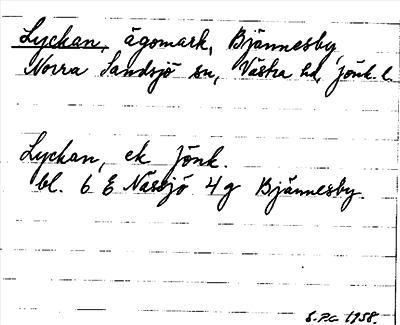 Lyckan, ägomark, Bjännesby,
Norra Sandsjö sn, Västra hd, Jönk. l.
Lyckan, ek Jönk.
bl. 6 E Nässjö 4g Bjännesby.
S.P.G. 1958.